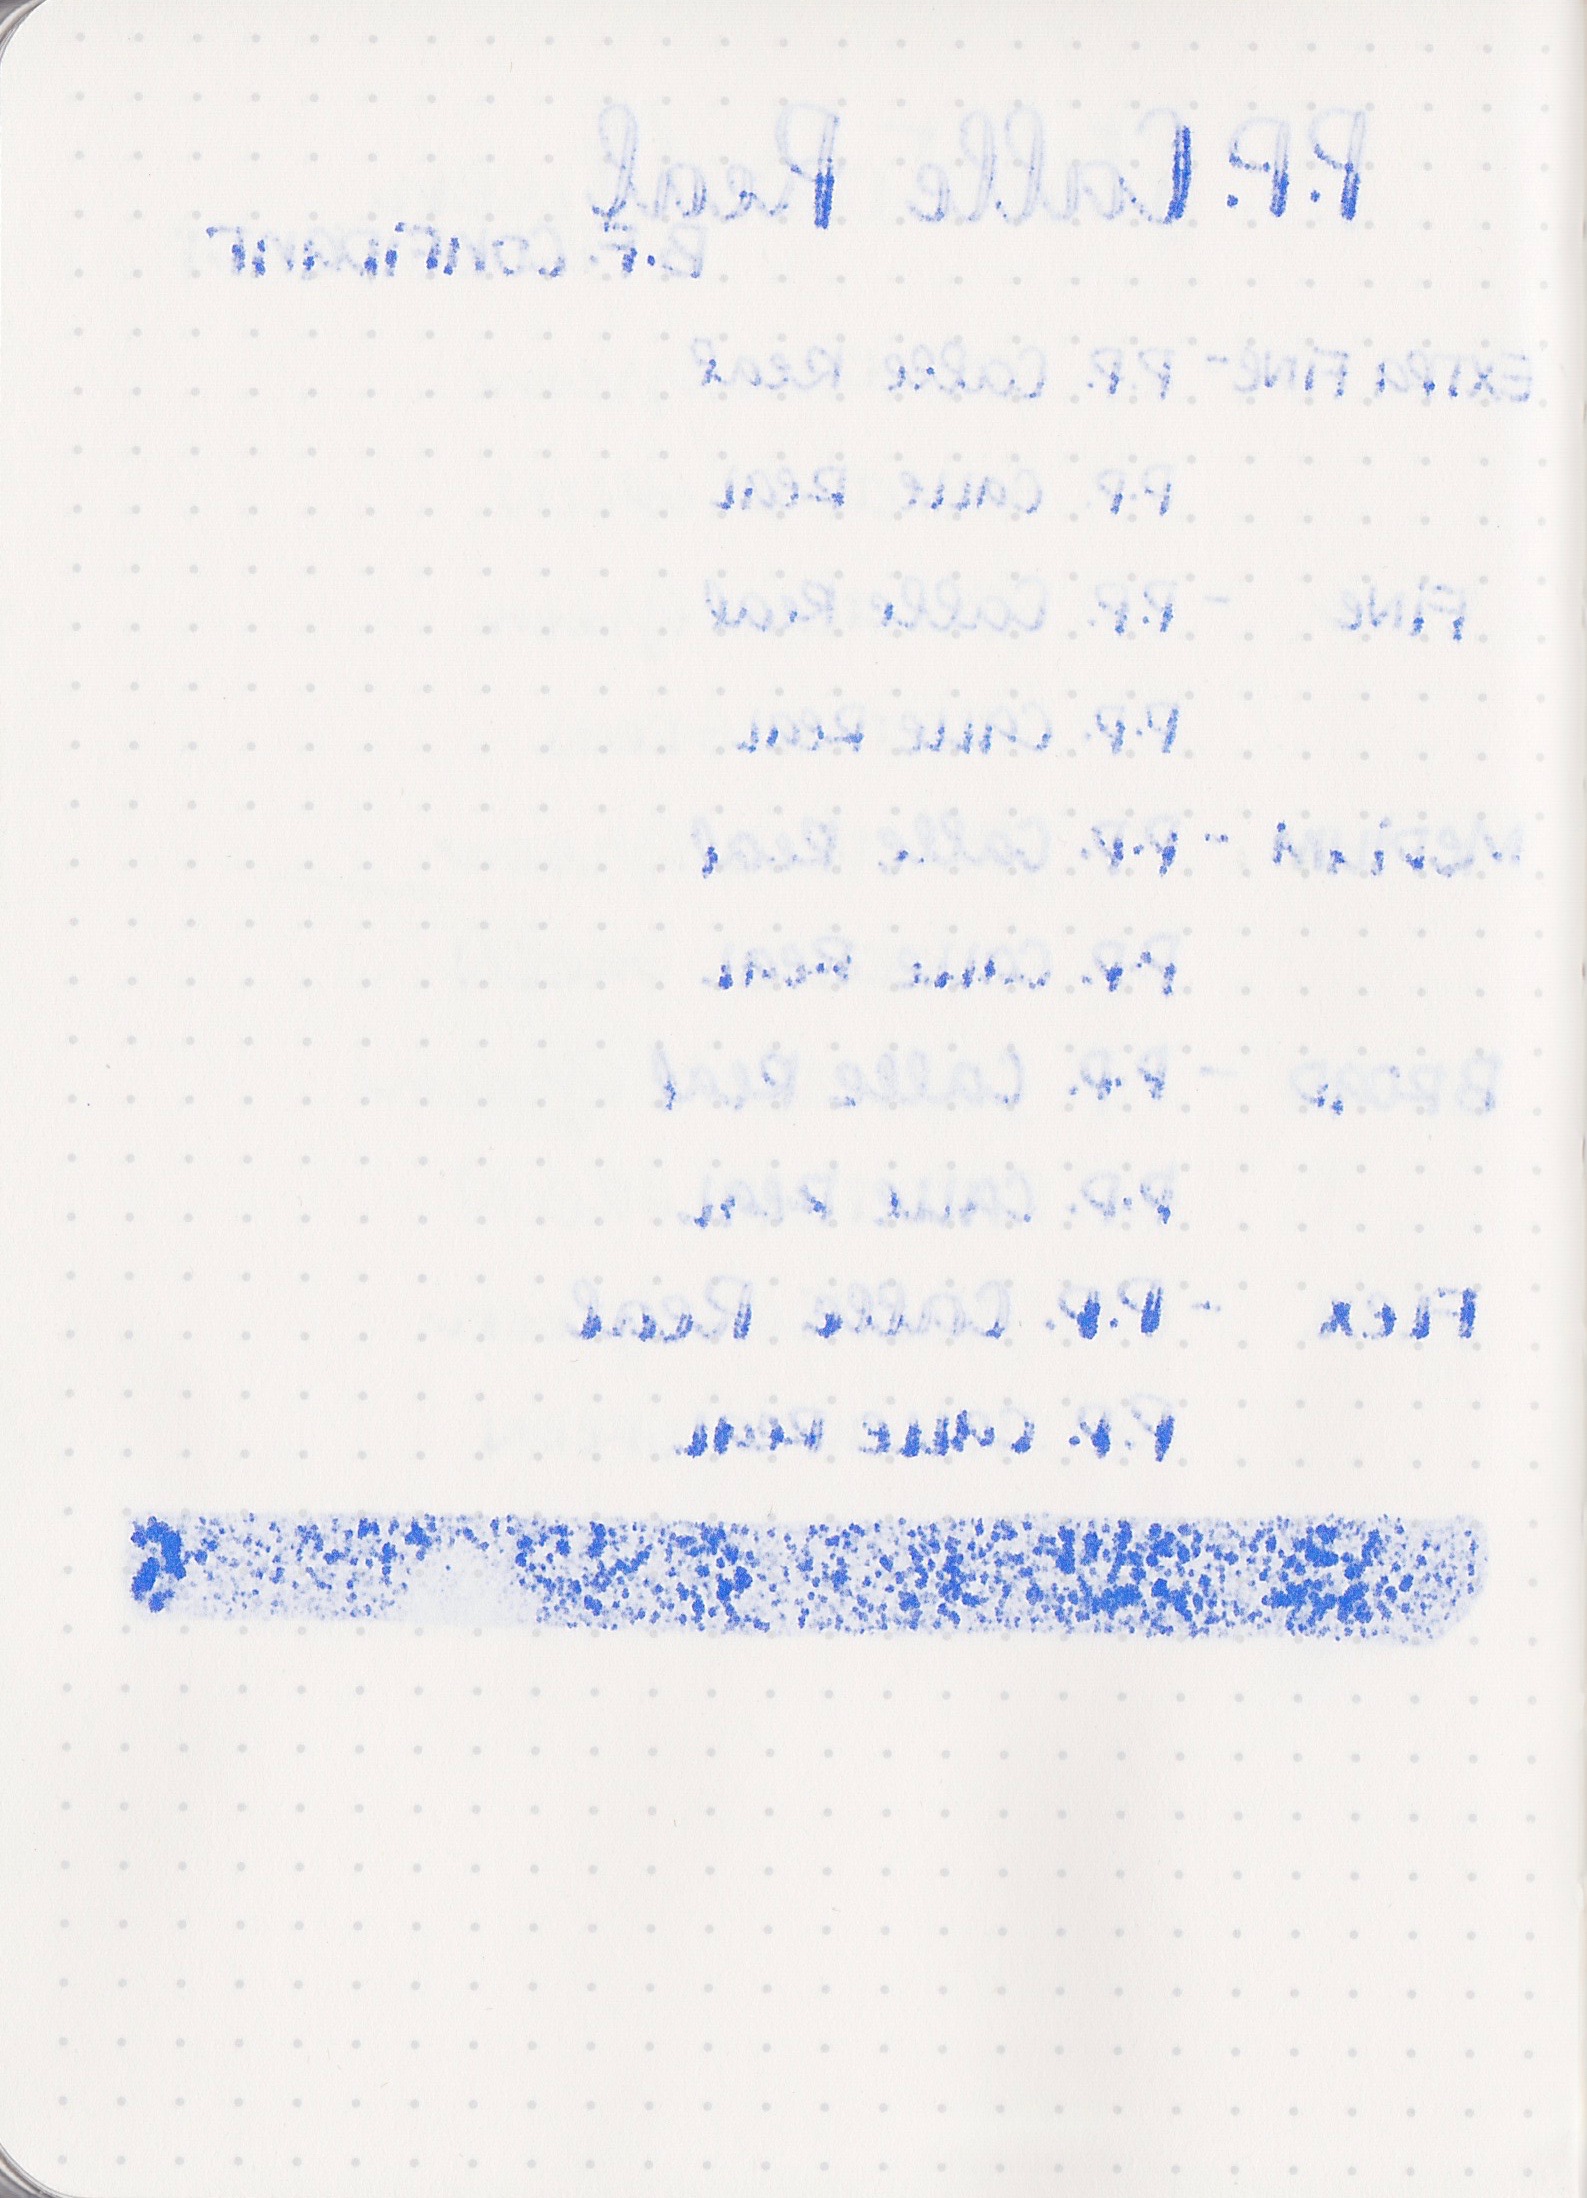 P.P. Calle Real
B.F. CONFIDANT
EXTRA FINE - P.P. Calle Real
P.P. Calle Real
FINE - P.P. Calle Real
P.P. Calle Real
MEDIUM - P.P. Calle Real
P.P. Calle Real
BROAD - P.P. Calle Real
P.P. Calle Real
Flex - P.P. Calle Real
P.P. Calle Real